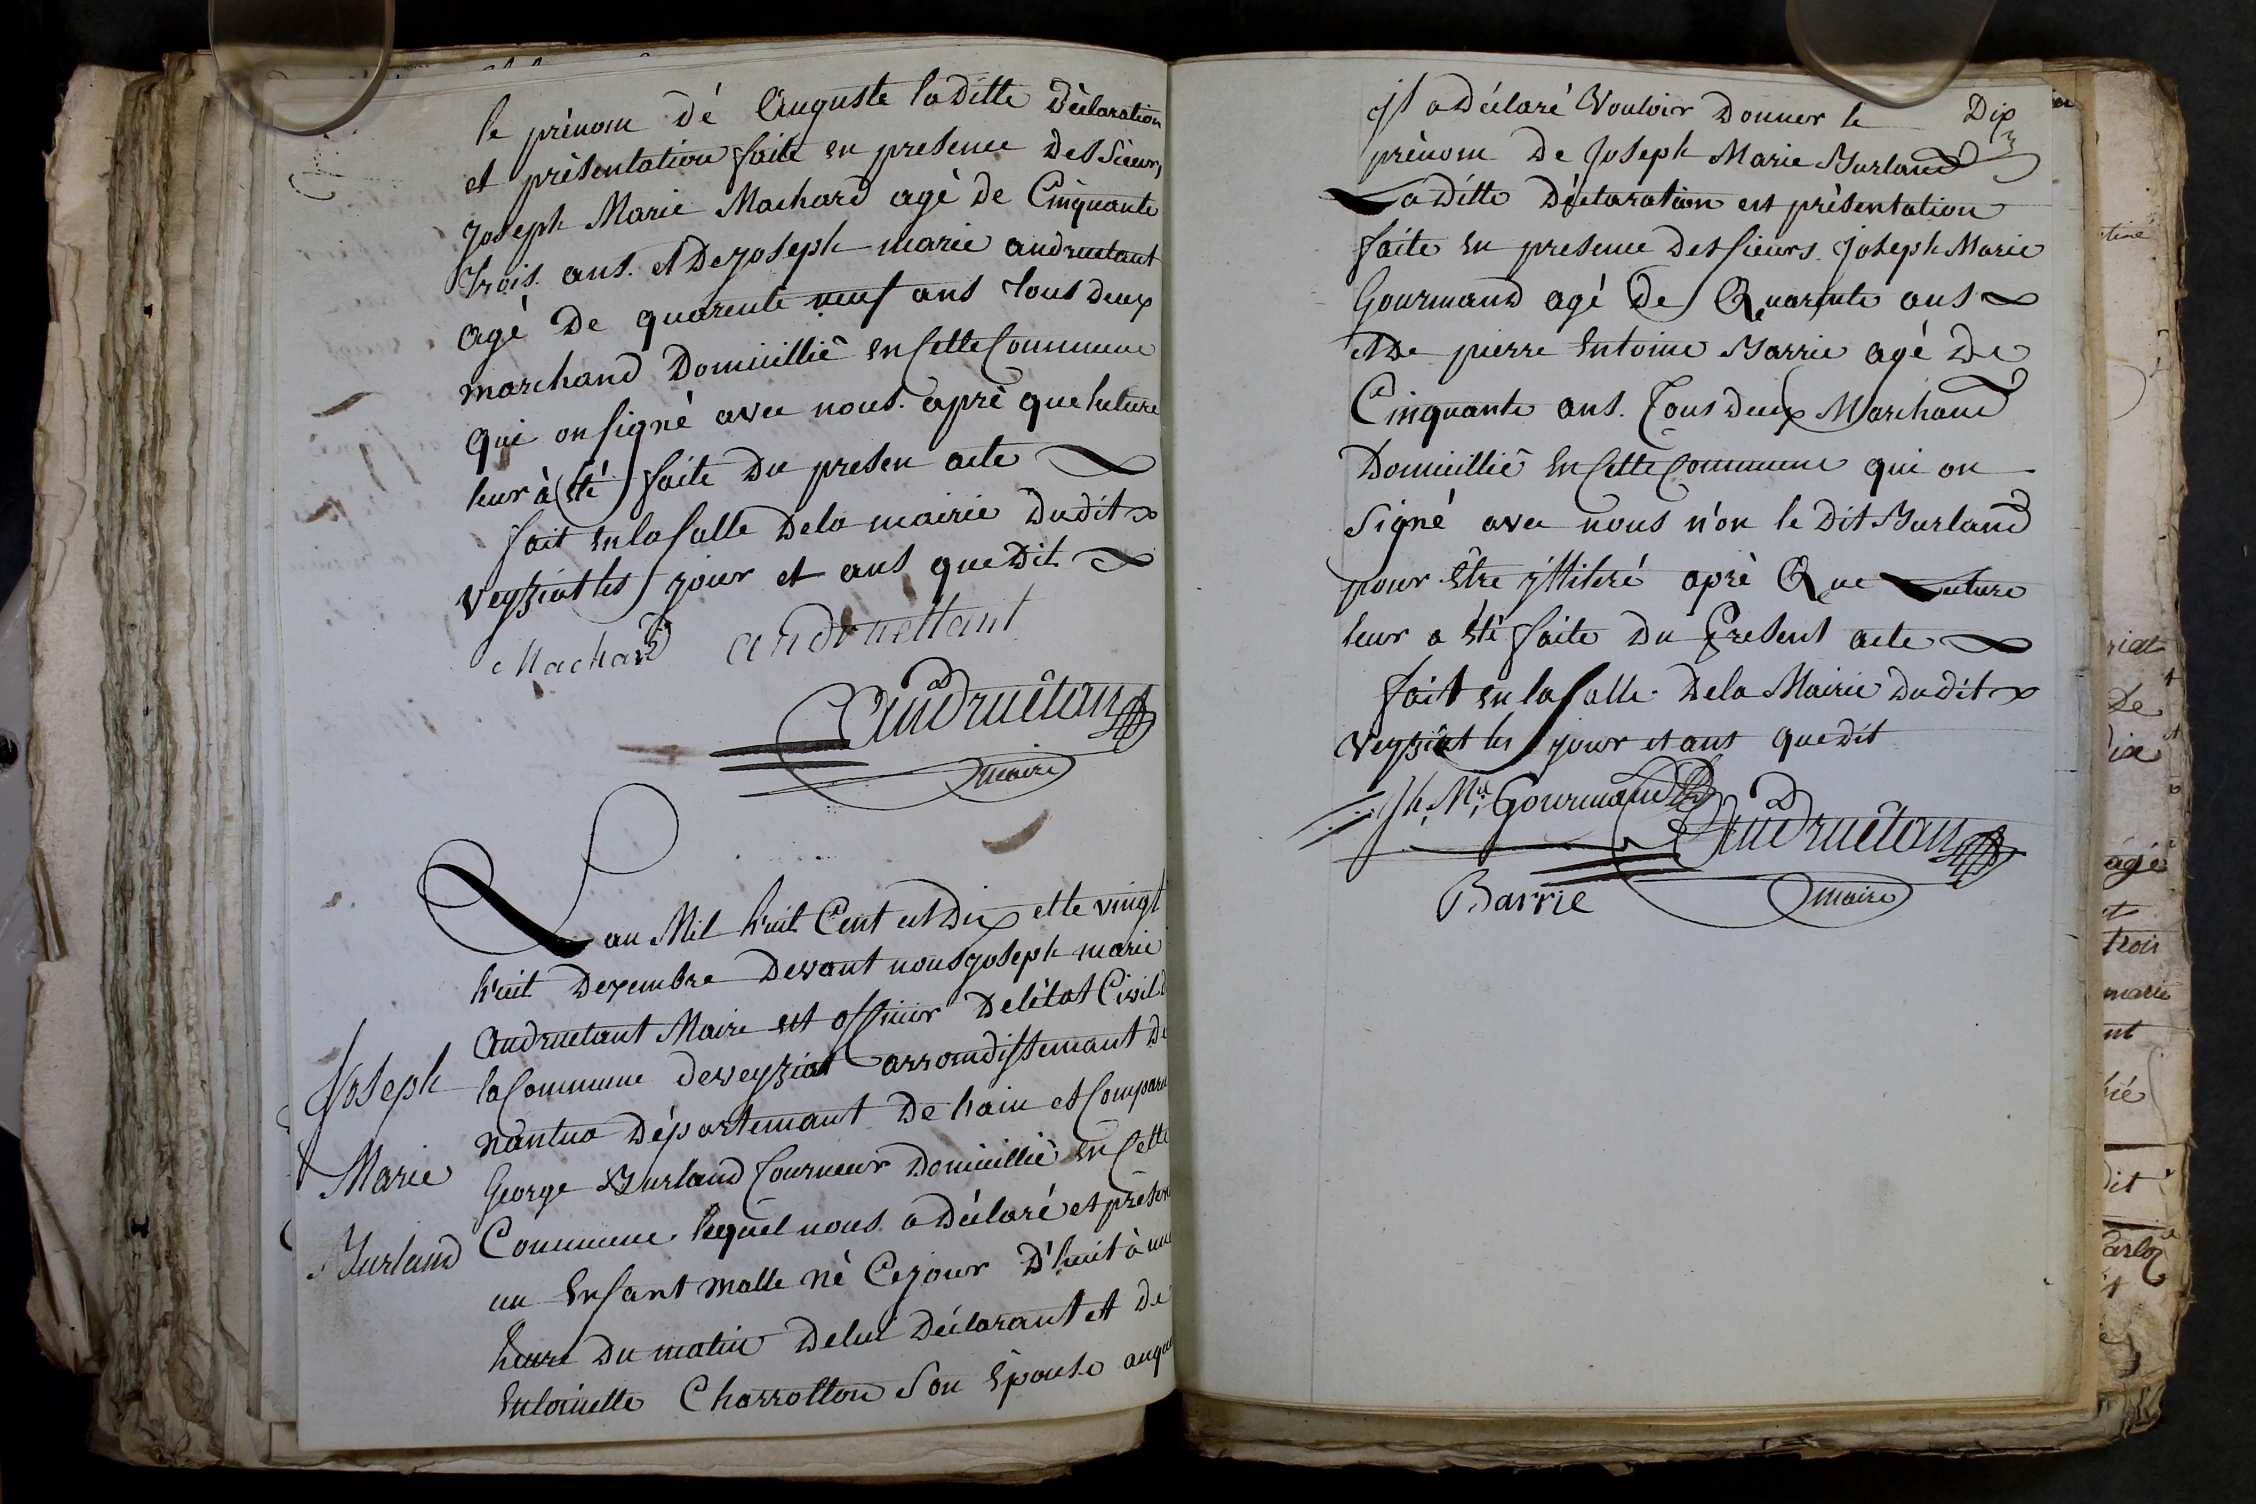 le prénom dé Auguste la Ditte Déclaration
et présentation faite en presence des sieurs
Joseph Marie Machard agé de Cinquante
trois ans. et De joseph marie andruetant
agé De quarente neuf ans tous deux
marchand Domicillié en Cette Commune
qui on signé avec nous. aprè que luture
leur à été faite Du presen acte
fait en la salle De la mairie Dudit
Veyziat les jour et ans que Dit
Machard andruettant
Andruétan
maire
L'an Mil huit Cent et Dix et le vingt
huit Dexembre Devant nous joseph marie
andruetant Maire et officier De létat Civil d
la Commune de veyziat arrondissemant De
nantua Départemant De hain et Comparu
George Burland tourneur Domicillié en Cette
Commune lequel nous a Déclaré et présen
un Enfant malle né Ce jour D'huit à une
heure Du matin De lui Déclarant et De
Entoinette Charrotton son épouse auque
Joseph
Marie
Burland
Dix
jl a Déclaré Vouloir Donner le
prénom De Joseph Marie Burland
La Ditte Déclaration et présentation
faite en presence des sieurs Joseph Marie
Gourmand agé De Quarente ans
et De pierre Entoine Barrie agé De
Cinquante ans. Tous Deux Marchand
Domicillié en Cette Commune qui on
signé avec nous n'on le Dit Burland
pour être jllitéré aprè Que Luture
leur a été faite Du Present acte
fait en la salle De la Mairie Dudit
Veyziat les jour et ans que dit
Jh. Mie Gourmand Andruétan
Barrie maire